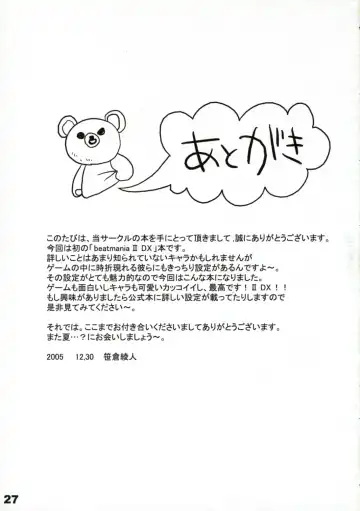 あとがき
このたびは、当サークルの本を手にとって頂きまして、誠にありがとうございます。
今回は初の「beatmania Ⅱ DX」本です。
詳しいことはあまり知られていないキャラかもしれませんが
ゲームの中に時折現れる彼らにもきっちり設定があるんですよ~。
その設定がとても魅力的なので今回はこんな本になりました。
ゲームも面白いしキャラも可愛いカッコイイし、最高です!ⅡDX!!
もし興味がありましたら公式本に詳しい設定が載ってたりしますので
是非見てみてください~。
それでは。ここまでお付き合いくださいましてありがとうございます。
また夏…?にお会いしましょう~。
2005 12.30 笹倉綾人
27